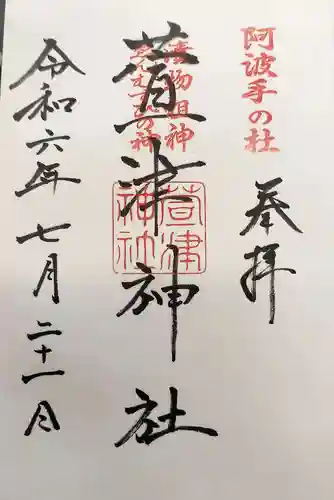 阿波手の杜
奉拝
漬物祖神
萱津神社
萱津神社
令和六年七月二十一日